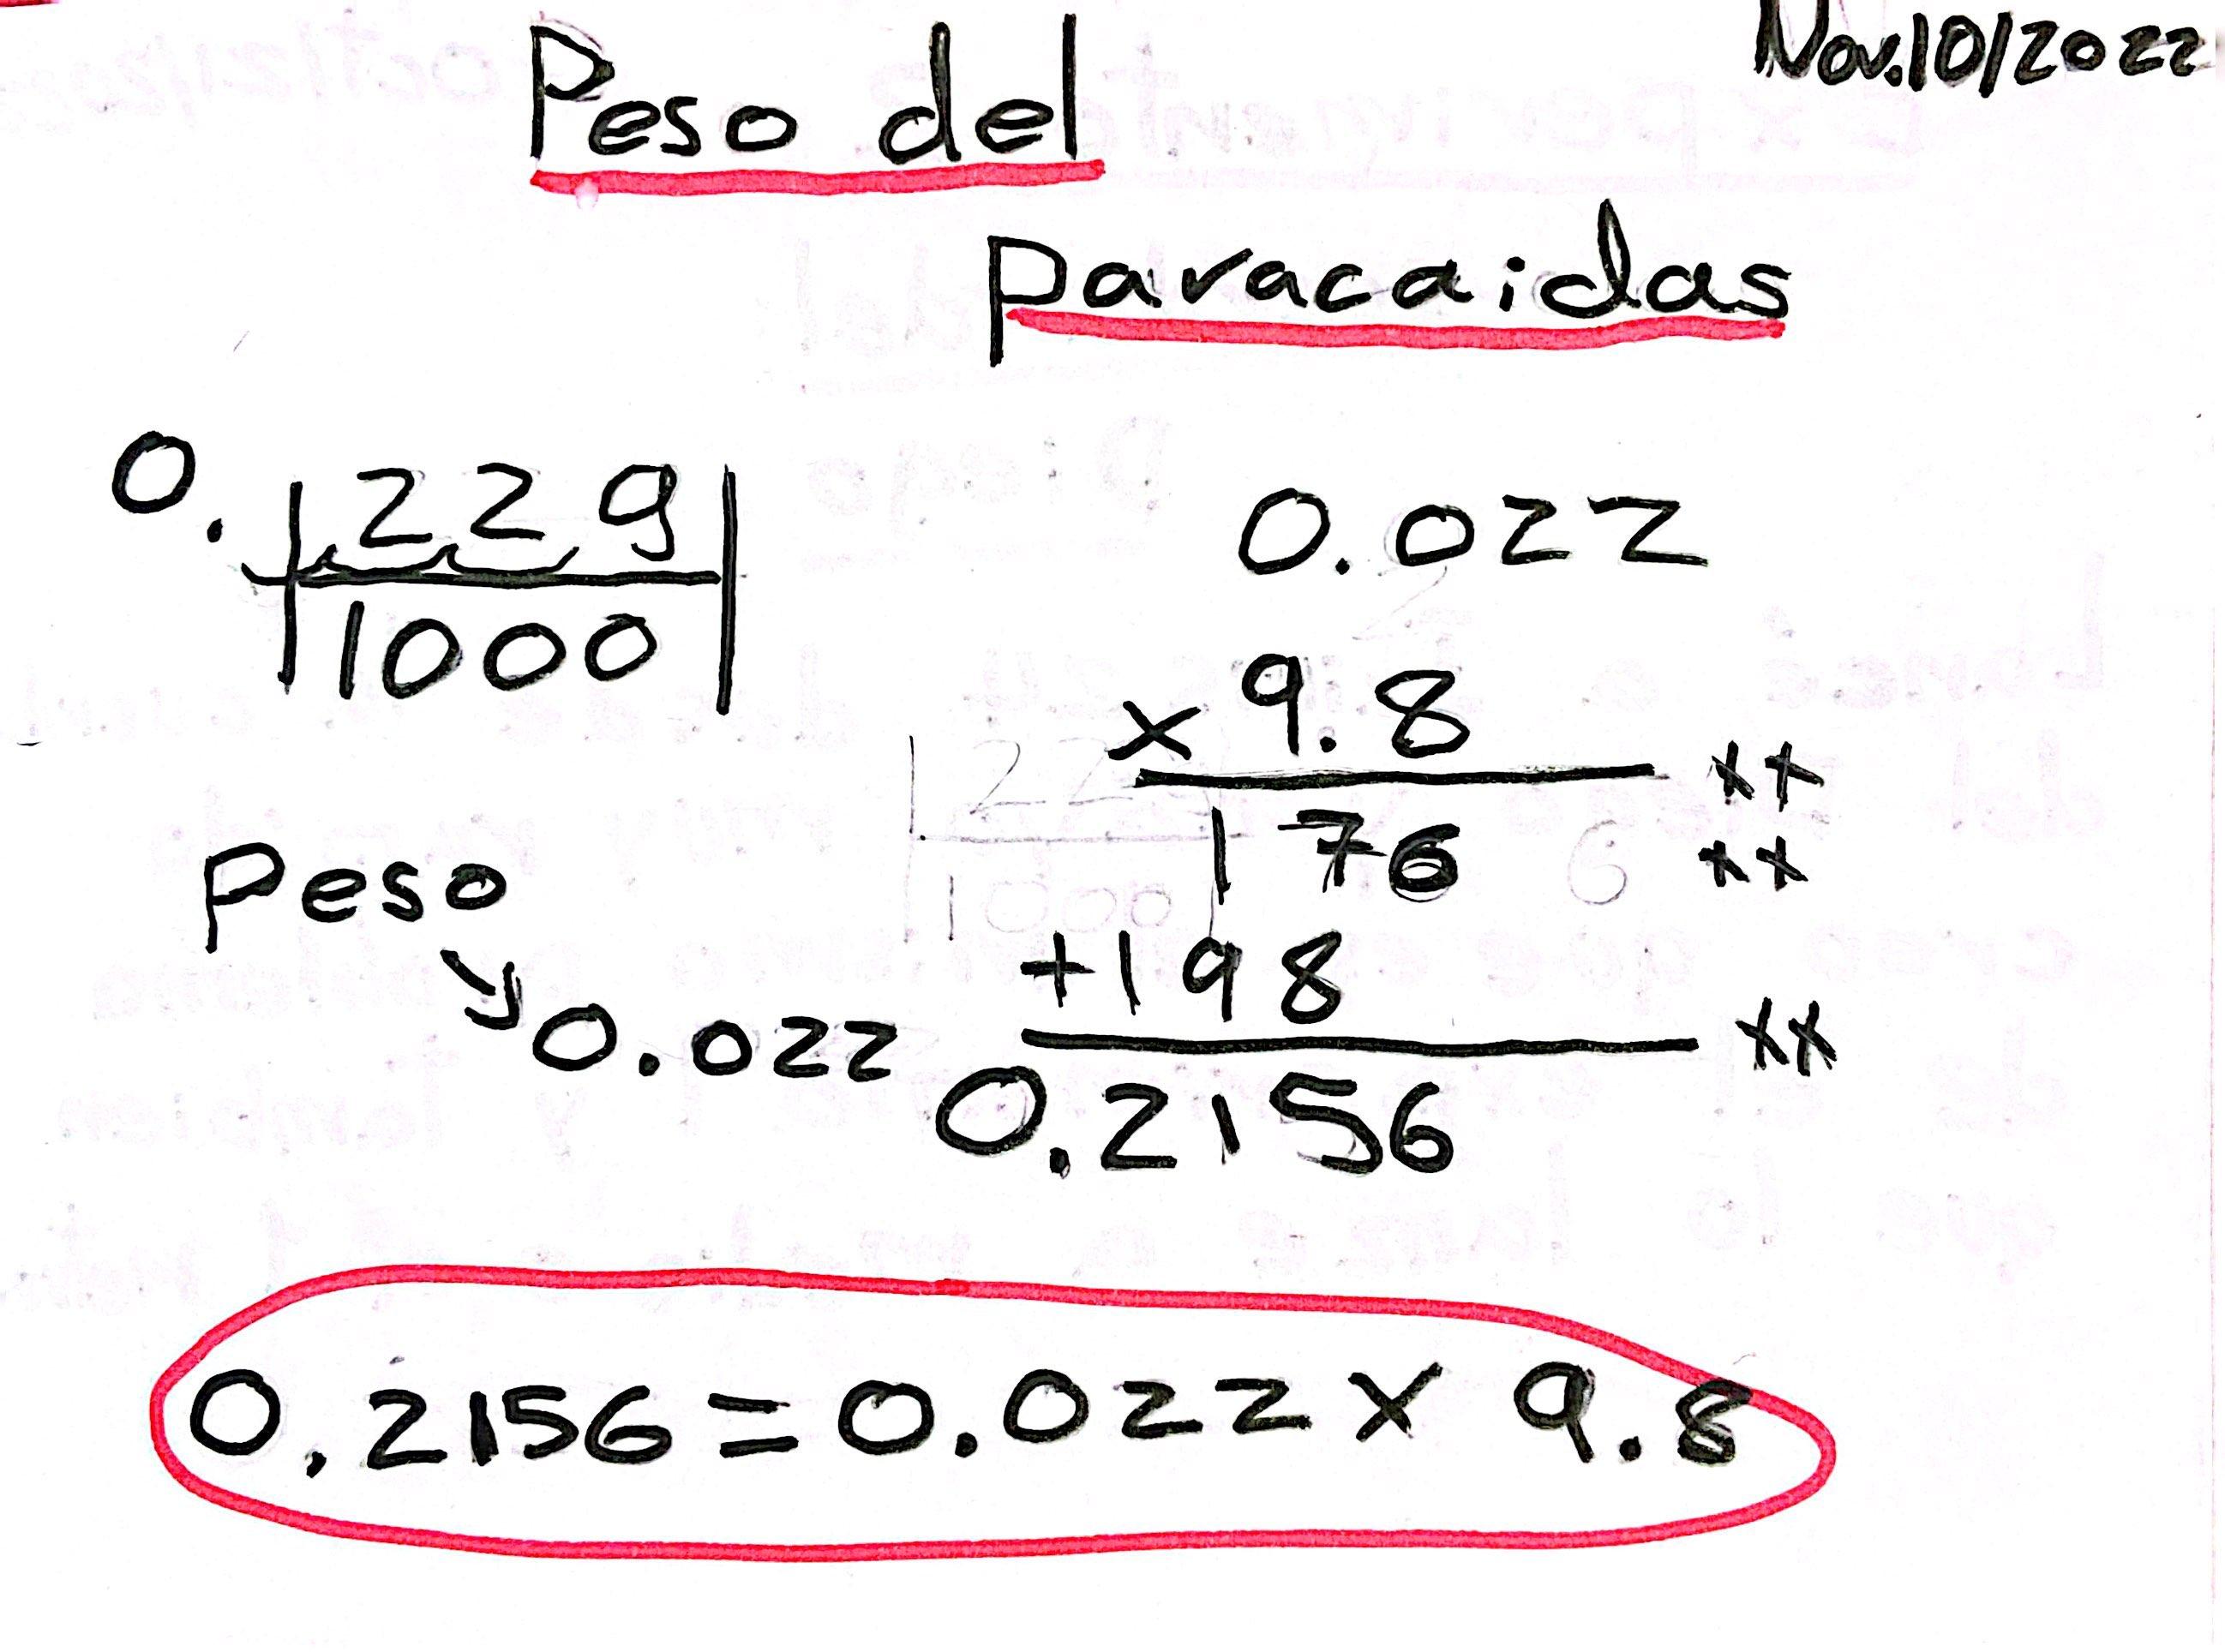 Nov.10/2022
Peso del
paracaidas
0. 22g
1000
0.022
x 9.8
176
+198
0.2156
Peso
0.022
0.2156 = 0.022 x 9.8